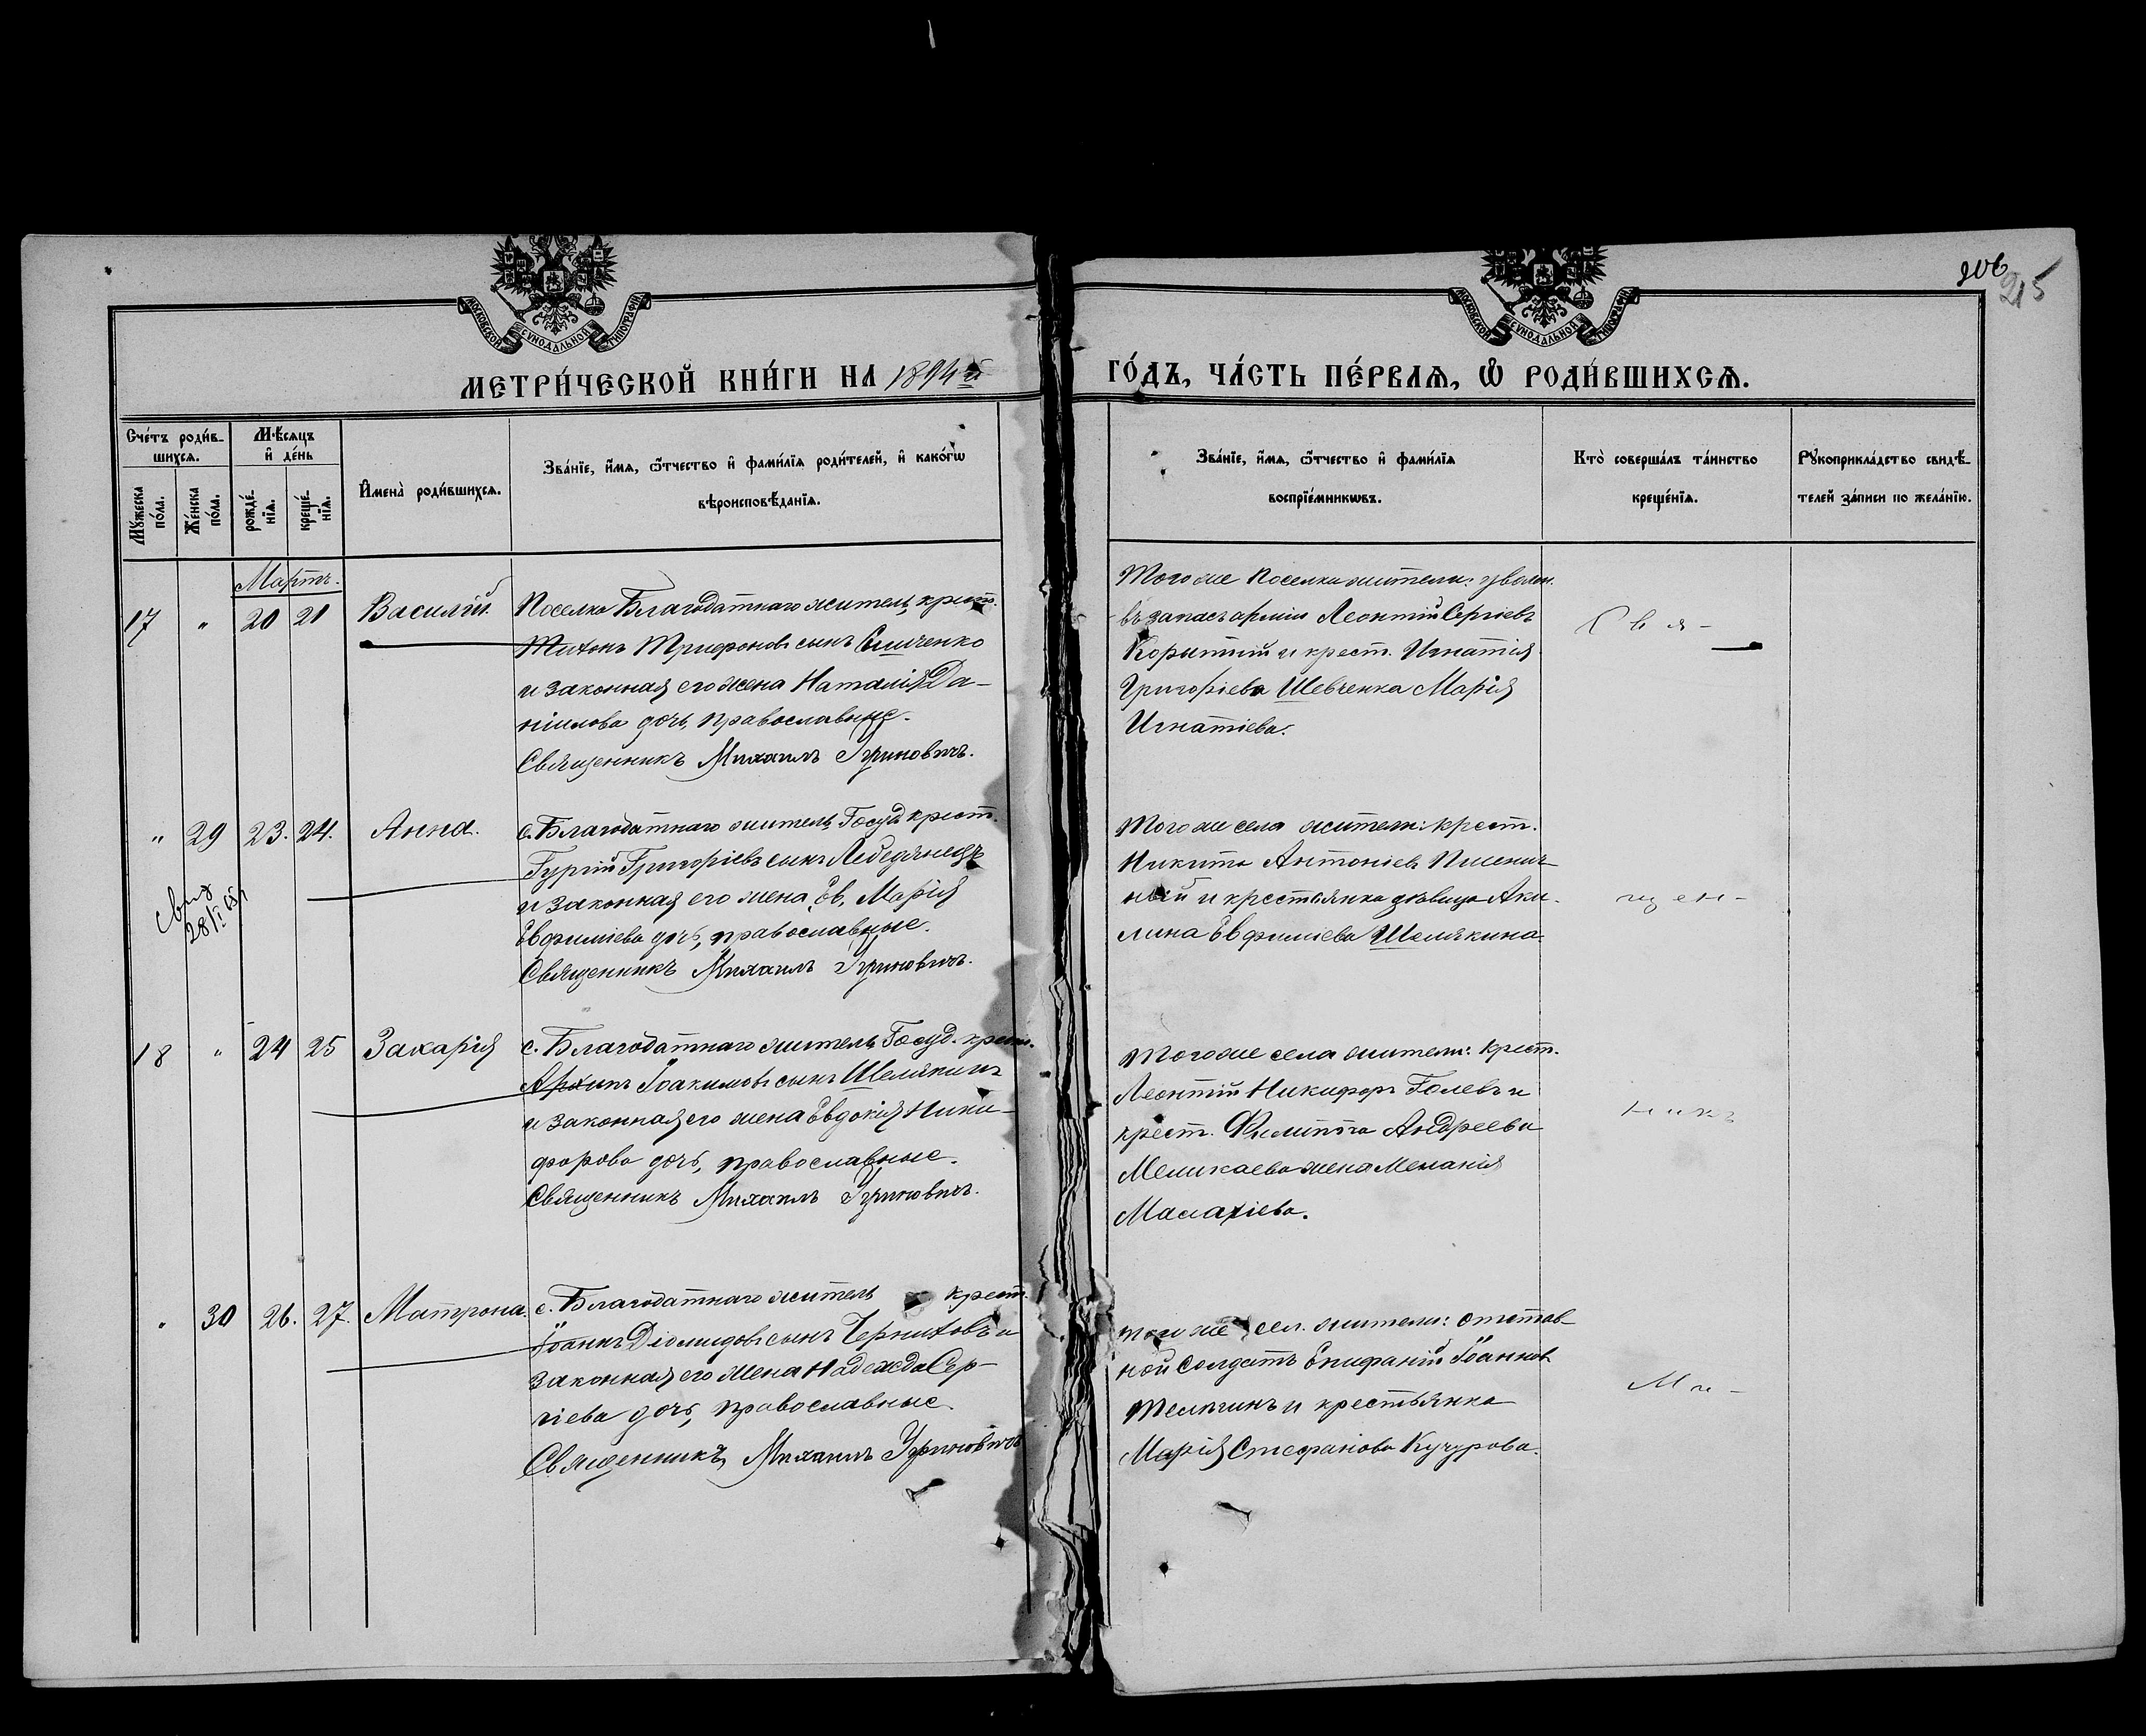 206
215
МОСКОВСКОЙ СУНОДАЛЬНОЙ ТИПОГРАФІИ
МОСКОВСКОЙ СУНОДАЛЬНОЙ ТИПОГРАФІИ
МЕТРИ́ЧЕСКОЙ КНИ́ГИ НА 1894й ГО́ДЪ, ЧА́СТЬ ПЕ́РВАЯ, Ѽ РОДИ́ВШИХСЯ.
Сче́тъ роди́в-
шихся.
Мѣ́сяцъ
и҆ де́нь
Мꙋ́жеска по́ла.
Же́нска по́ла.
рожде́нїя.
креще́нїя.
И҆мена̀ роди́вшихся.
Зва́нїе, и҆́мя, ѻ҆́тчество и҆ фами́лїя роди́телей, и҆ како́гѡ
вѣроисповѣ́данїя.
Зва́нїе, и҆́мя, ѻ҆́тчество и҆ фами́лїя
воспрїе́мникѡвъ.
Кто̀ соверша́лъ та́инство
креще́нїя.
Рꙋкоприкла́дство свидѣ́-
телей за́писи по жела́нїю.
Мартъ.
17 " 20 21 Василій.
Поселка Благодатнаго житель, крест.
Тихонъ Трифоновъ сынъ
и законная его жена Наталія Да-
ніилова дочь, православные.
Священникъ Михаилъ Гриновичъ.
Того же поселка жители: уволен.
въ запасъ арміи Леонтій Сергіевъ
Корытній и крест. Игнатія
Григоріева Шевченка Марія
Игнатіева.
Свя-
" 29 23. 24. Анна.
с. Благодатнаго житель, Госуд. крест.
Гурій Григоріевъ сынъ Лебедянецъ
и законная его жена, Марія
Евфиміева дочь, православные.
Священникъ Михаилъ Гриновичъ.
Того же села жители: крест.
Никита Антоніевъ Пшенич-
ный и крестьянка дѣвица Аки-
лина Евфиміева Шелякина.
щен-
28/I
18 " 24 25 Захарія
с. Благодатнаго житель, Госуд. крест.
Архипъ Іоакимовъ сынъ Шелякинъ
и законная его жена Евдокія Ники-
форова дочь, православные.
Священникъ Михаилъ Гриновичъ.
Того же села жители: крест.
Леонтій Никифоръ Голевъ и
крест. Филиппа Андреева
Меликаева жена Меланія
Малахіева.
никъ
" 30 26. 27. Матрона.
с. Благодатнаго житель крест.
Іоаннъ Діомидовъ сынъ Черниховъ и
законная его жена Надежда Сер-
гіева дочь, православные.
Священникъ, Михаилъ Гриновичъ
того же сел. жители: отстав-
ной солдатъ Епифаній Іоаннов.
Тельгинъ и крестьянка
Марія Стефанова Кучурова.
Ми-